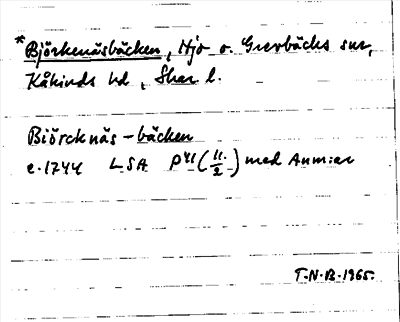 *Björkenäsbäcken, Hjo o. Grevbäcks snr,
Kåkinds hd, Skar l.
Biörcknäs-bäcken
e.1744 LSA P41(11/2) med Anm:er
T-N-B-1965.